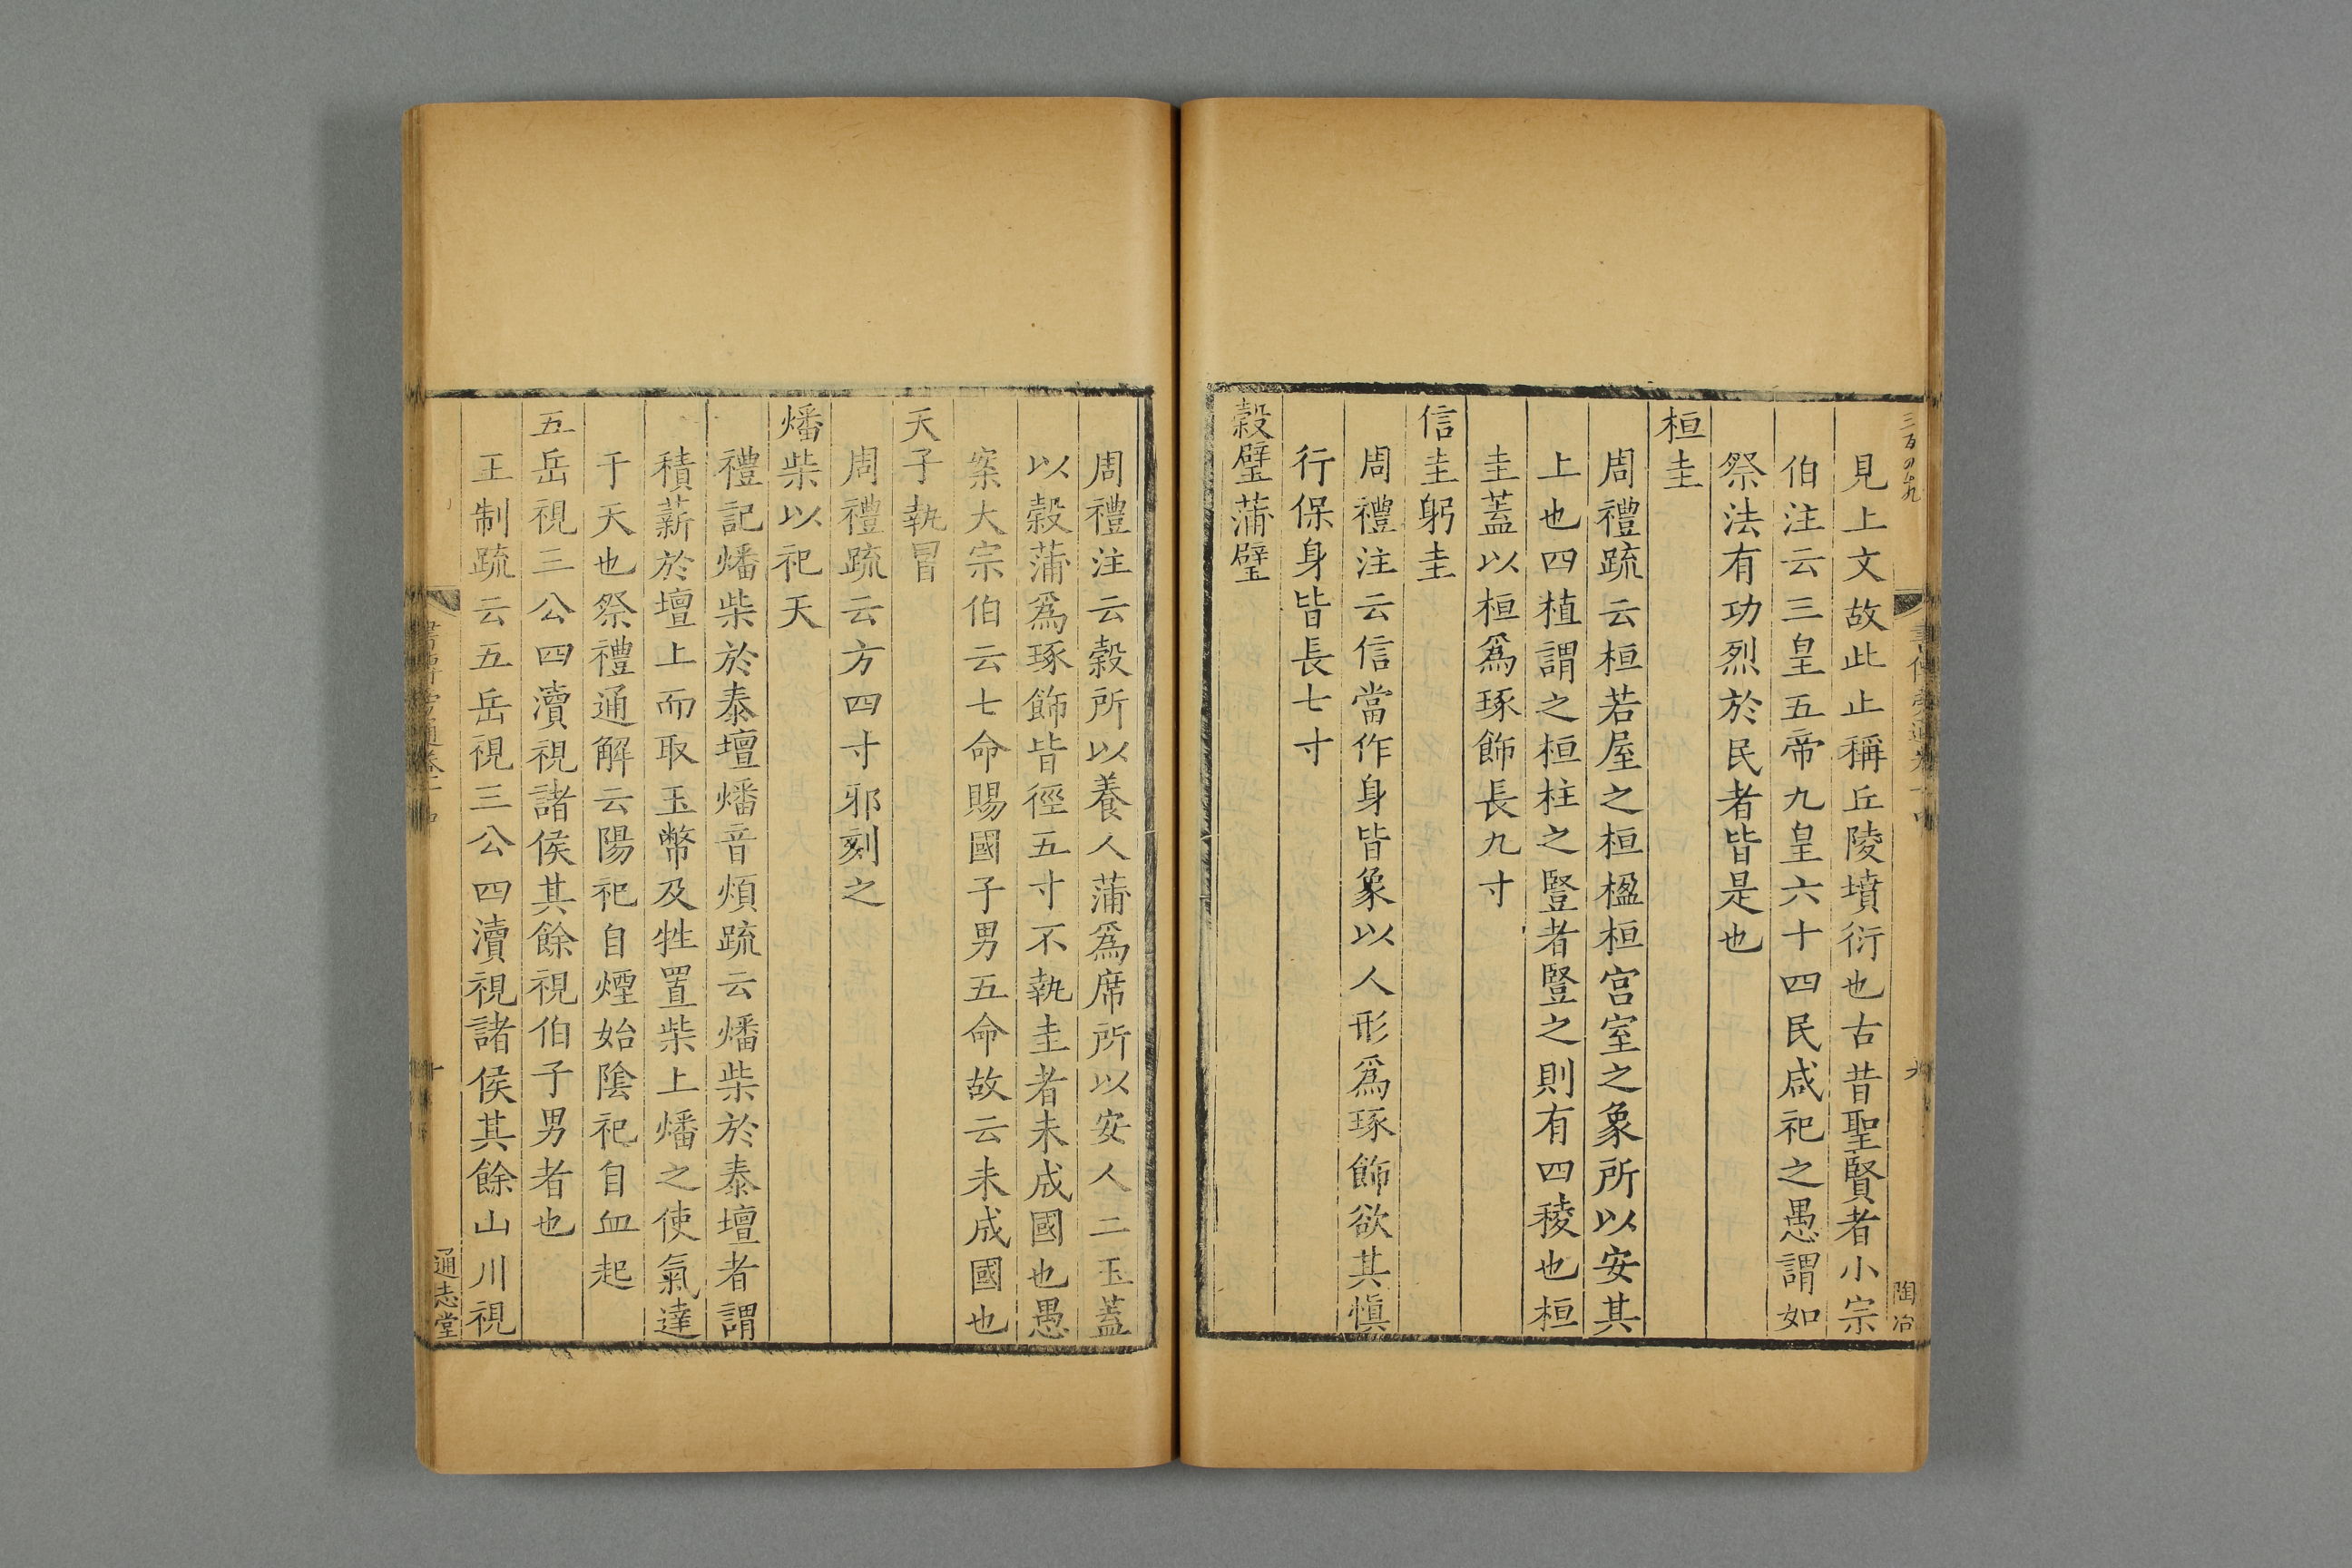 見上文故此止稱丘陵墳衍也古昔聖賢者小宗
伯注云三皇五帝九皇六十四民咸祀之愚謂如
祭法有功烈於民者皆是也
桓圭
周禮疏云桓若屋之桓楹桓宫室之象所以安其
上也四植謂之桓柱之豎者豎之則有四稜也桓
圭蓋以桓爲琢飾長九寸
信圭躬圭
周禮注云信當作身皆象以人形爲琢飾欲其愼
行保身皆長七寸
穀璧蒲璧
陶冶
周禮注云穀所以養人蒲爲席所以安人二玉蓋
以穀蒲爲琢飾皆徑五寸不執圭者未成國也愚
案大宗伯云七命賜國子男五命故云未成國也
天子執冒
周禮疏云方四寸邪刻之
燔柴以祀天
禮記燔柴於泰壇燔音煩疏云燔柴於泰壇者謂
積薪於壇上而取玉幣及牲置柴上燔之使氣達
于天也祭禮通解云陽祀自煙始陰祀自血起
五岳視三公四瀆視諸侯其餘視伯子男者也
王制疏云五岳視三公四瀆視諸侯其餘山川視
通志堂